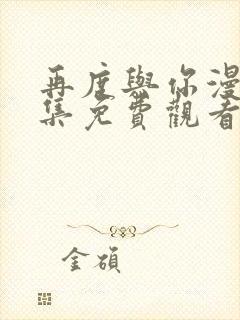 再度與你漫
集免費觀看
金碩